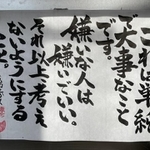 これは単純
ご大事なこと
です。
嫌いな人は
嫌いでいい。
それ以上考え
ないようにする